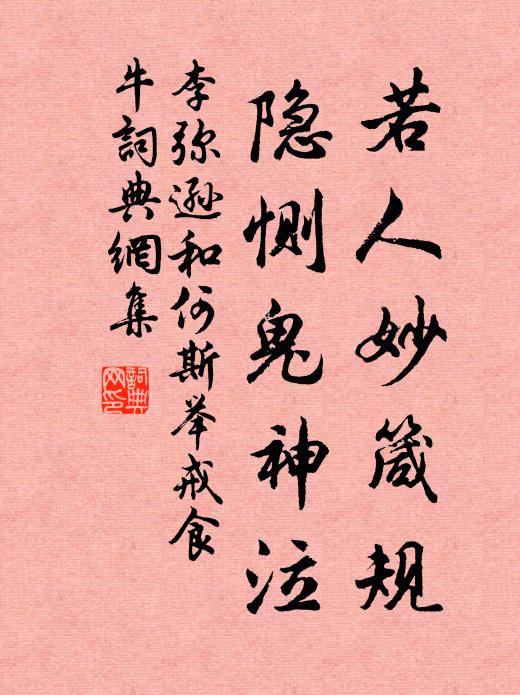 若人妙箴规
隐恻鬼神泣
李弥逊和何斯举戒食
牛詞典網集
詞典网印